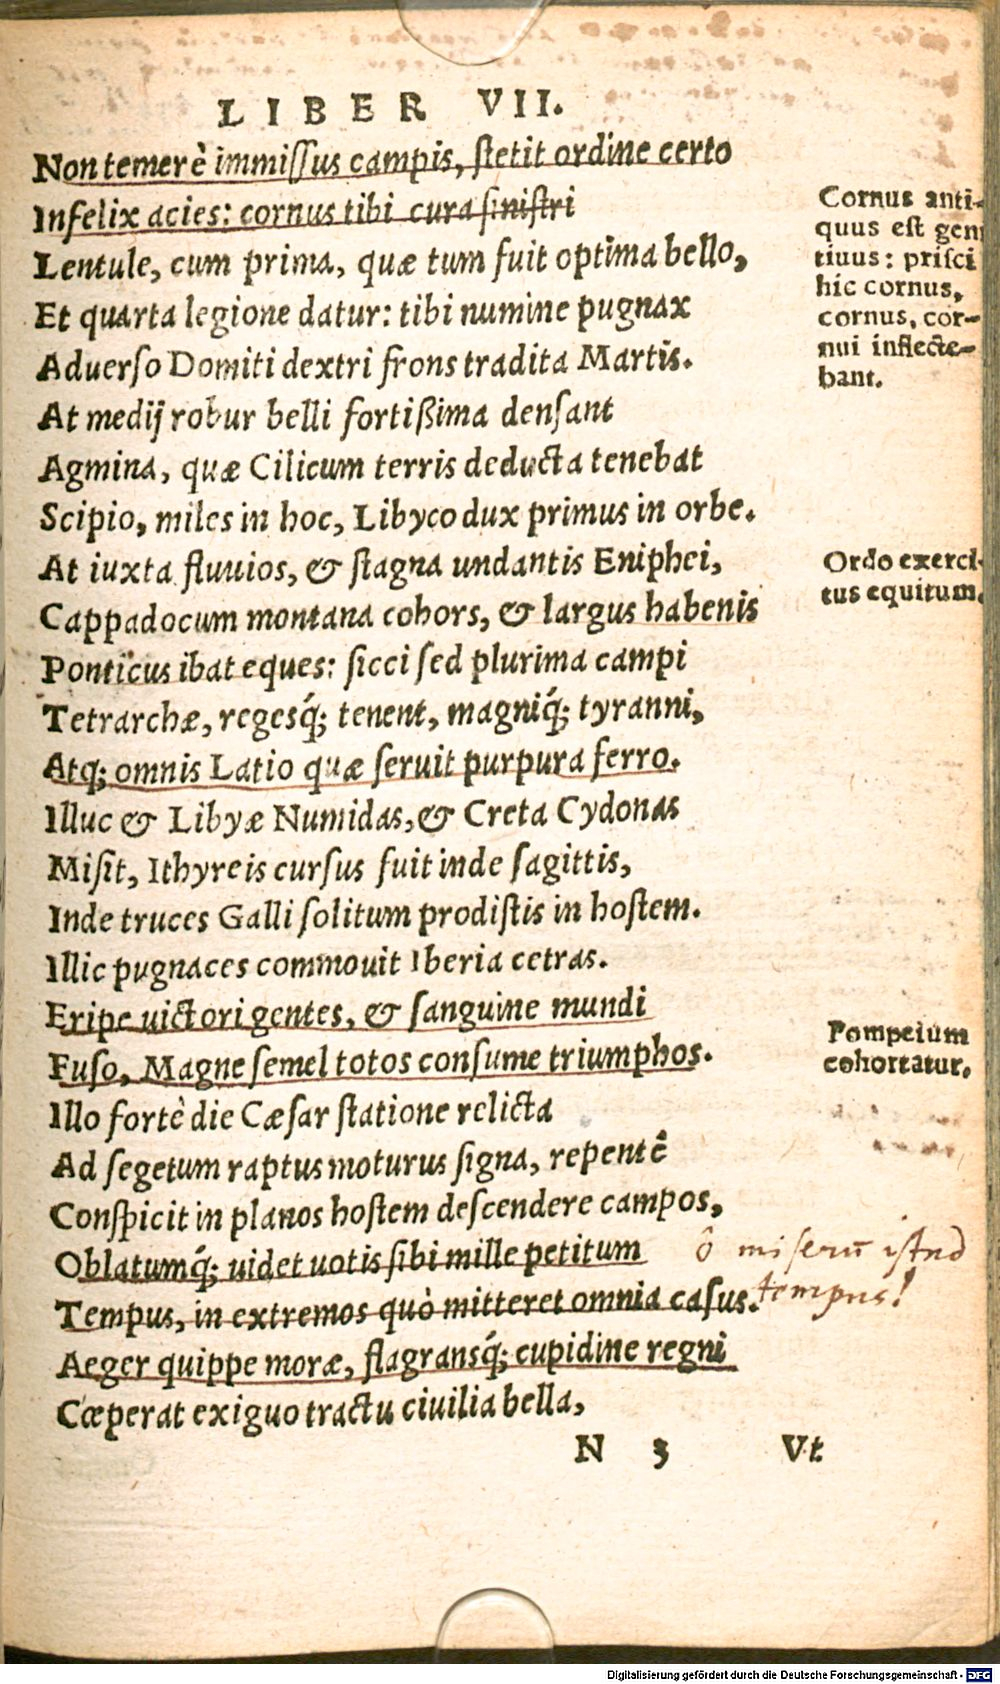 LIBER VII.
Non temerè immissus campis, stetit ordine certo
Infelix acies: cornus tibi cura sinistri
Lentule, cum prima, quæ tum fuit optima bello,
Et quarta legione datur: tibi numine pugnax
Aduerso Domiti dextri frons tradita Martis.
At medij robur belli fortißima densant
Agmina, quæ Cilicum terris deducta tenebat
Scipio, miles in hoc, Libyco dux primus in orbe.
At iuxta fluuios, & stagna undantis Eniphei,
Cappadocum montana cohors, & largus habenis
Ponticus ibat eques: sicci sed plurima campi
Tetrarchæ, regesq́; tenent, magniq́; tyranni,
Atq; omnis Latio quæ seruit purpura ferro.
Illuc & Libyæ Numidas, & Creta Cydonas
Misit, Ithyreis cursus fuit inde sagittis,
Inde truces Galli solitum prodistis in hostem.
Illic pugnaces commouit Iberia cetras.
Eripe uictori gentes, & sanguine mundi
Fuso, Magne semel totos consume triumphos.
Illo fortè die Cæsar statione relicta
Ad segetum raptus moturus signa, repentè
Conspicit in planos hostem descendere campos,
Oblatumq́; uidet uotis sibi mille petitum
Tempus, in extremos quò mitteret omnia casus.
Aeger quippe moræ, flagransq́; cupidine regni
Cœperat exiguo tractu ciuilia bella,
N 3 Vt
Cornus anti-
quus est geni
tiuus: prisci
hic cornus,
cornus, cor-
nui inflecte-
bant.
Ordo exerci-
tus equitum.
Pompeium
cohortatur.
ô miserũ istud
tempus!
Digitalisierung gefördert durch die Deutsche Forschungsgemeinschaft - DFG